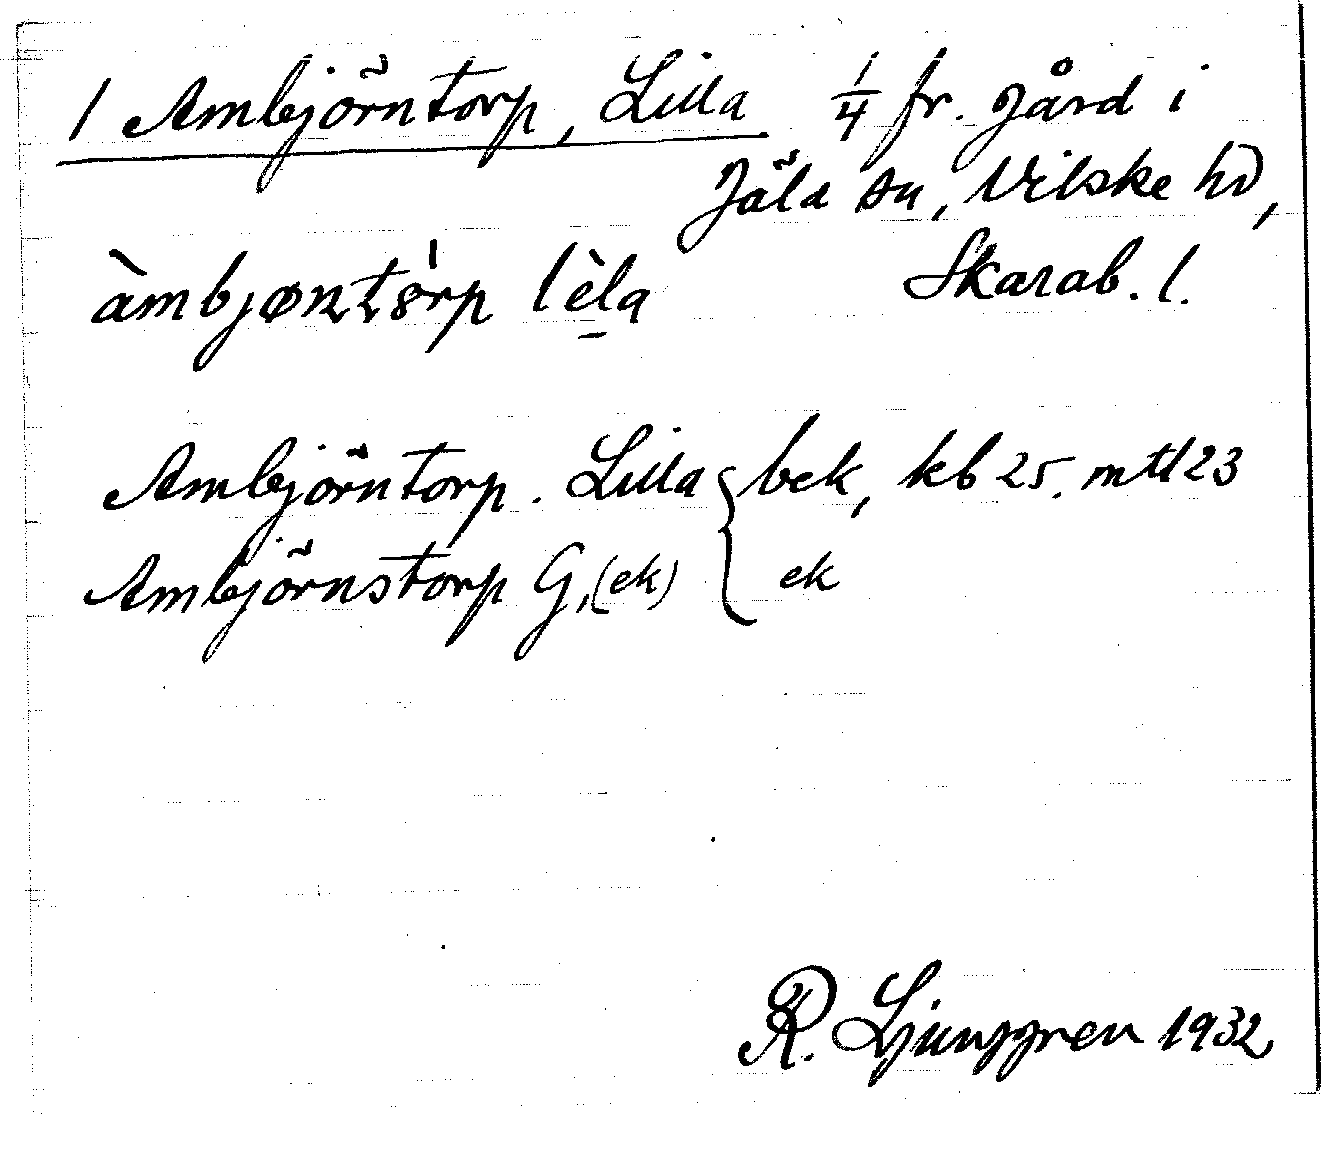 1 Ambjörntorp, Lilla 1/4 fr. gård i
Jäla sn, Vilske hd,
àmbjønts̍rp lèla Skarab. l.
Ambjörntorp. Lilla { bek, kb 25. mtl 23
Ambjörnstorp G, (ek) { ek
R. Ljunggren 1932